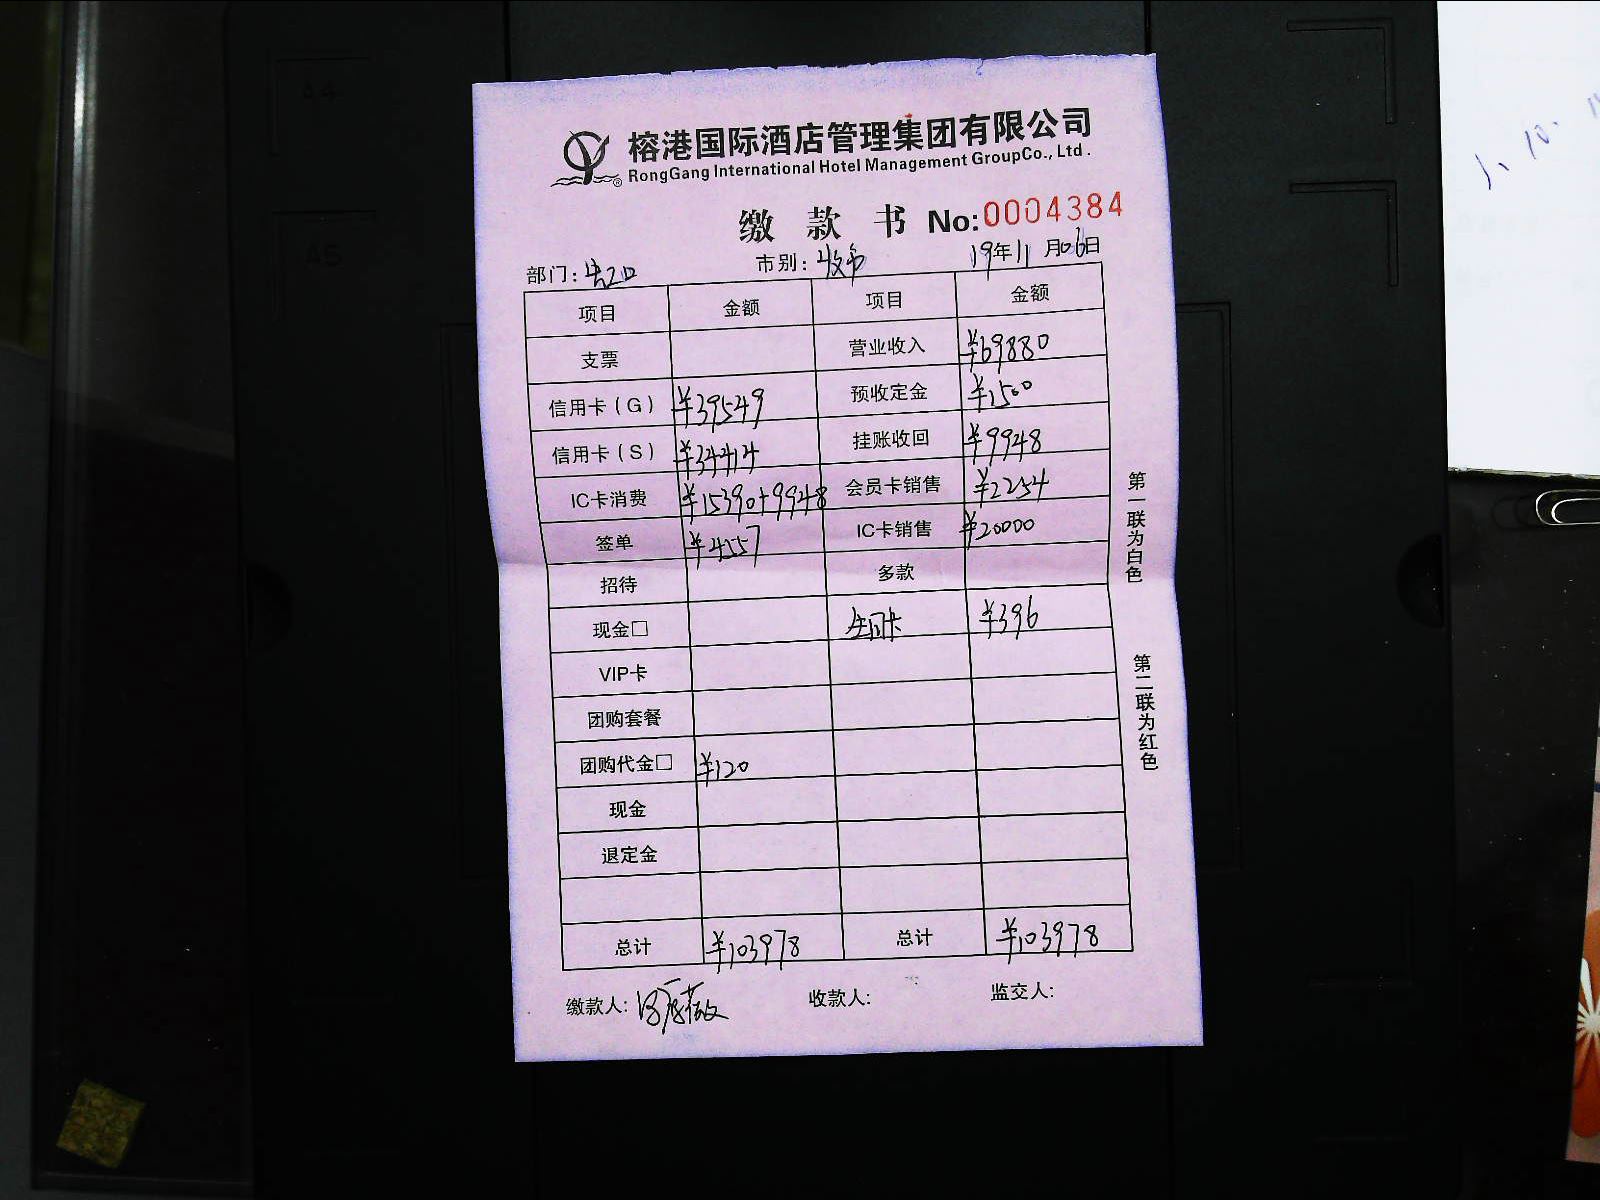 A4
A5
榕港国际酒店管理集团有限公司
RongGang International Hotel Management GroupCo., Ltd.
缴款书 No:0004384
部门: 市别:收市 19年11月06日
项目 金额 项目 金额
支票 营业收入 ¥69880
信用卡(G) ¥39549 预收定金 ¥1500
信用卡(S) ¥34414 挂账收回 ¥9948
IC卡消费 ¥15390+9948 会员卡销售 ¥2254
签单 ¥4557 IC卡销售 ¥20000
招待 多款
现金□ 卡 ¥396
VIP卡
团购套餐
团购代金□ ¥120
现金
退定金
总计 ¥103978 总计 ¥103978
缴款人: 收款人: 监交人:
第一联为白色
第二联为红色